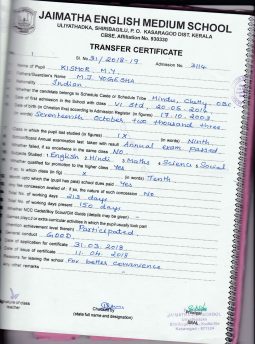 JAIMATHA ENGLISH MEDIUM SCHOOL
ULIYATHADKA, SHIRIBAGILU, P. O. KASARAGOD DIST. KERALA
CBSE. Affiliation No. 930330
TRANSFER CERTIFICATE
Sl. No. 31/2018-19 Admission No. 3114
of Pupil KISHOR. M.Y.
Father's/Guardian's Name M.J. YOGESHA
Indian
whether the candidate belongs to Schedule Caste or Schedule Tribe Hindu, Chetty OBC
of first admission in the School with class VI. Std, 20.05.2013
of birth (in Christian Era) according to Admission Register (in figures) 17.10.2003
Seventeenth October, Two thousand three.
Class in which the pupil last studied (in figures) IX (in words) Ninth
Annual examination last taken with result Annual Exam passed
failed, if so once/twice in the same class No
Studied : English, Hindi, Maths, Science, Social
qualified for promotion to the higher class Yes
to which class (in fig) X (in words) Tenth
upto which the (pupil has paid) school dues paid Yes
concession availed of : if so, the nature of such concession No
No. of working days 213 days
No. of working days present 150 days
whether NCC Cadet/Boy Scout/Girl Guide (details may be given)
played or extra-curricular activities in which the pupil usually took part
achievement level therein) Participated
General conduct GOOD
Date of application for certificate 31.03.2018
Date of issue of certificate 11-04-2018
Reasons for leaving the school For better convenience
any other remarks
Checked by
(state full name and designation)
Principal
JAIMATHA